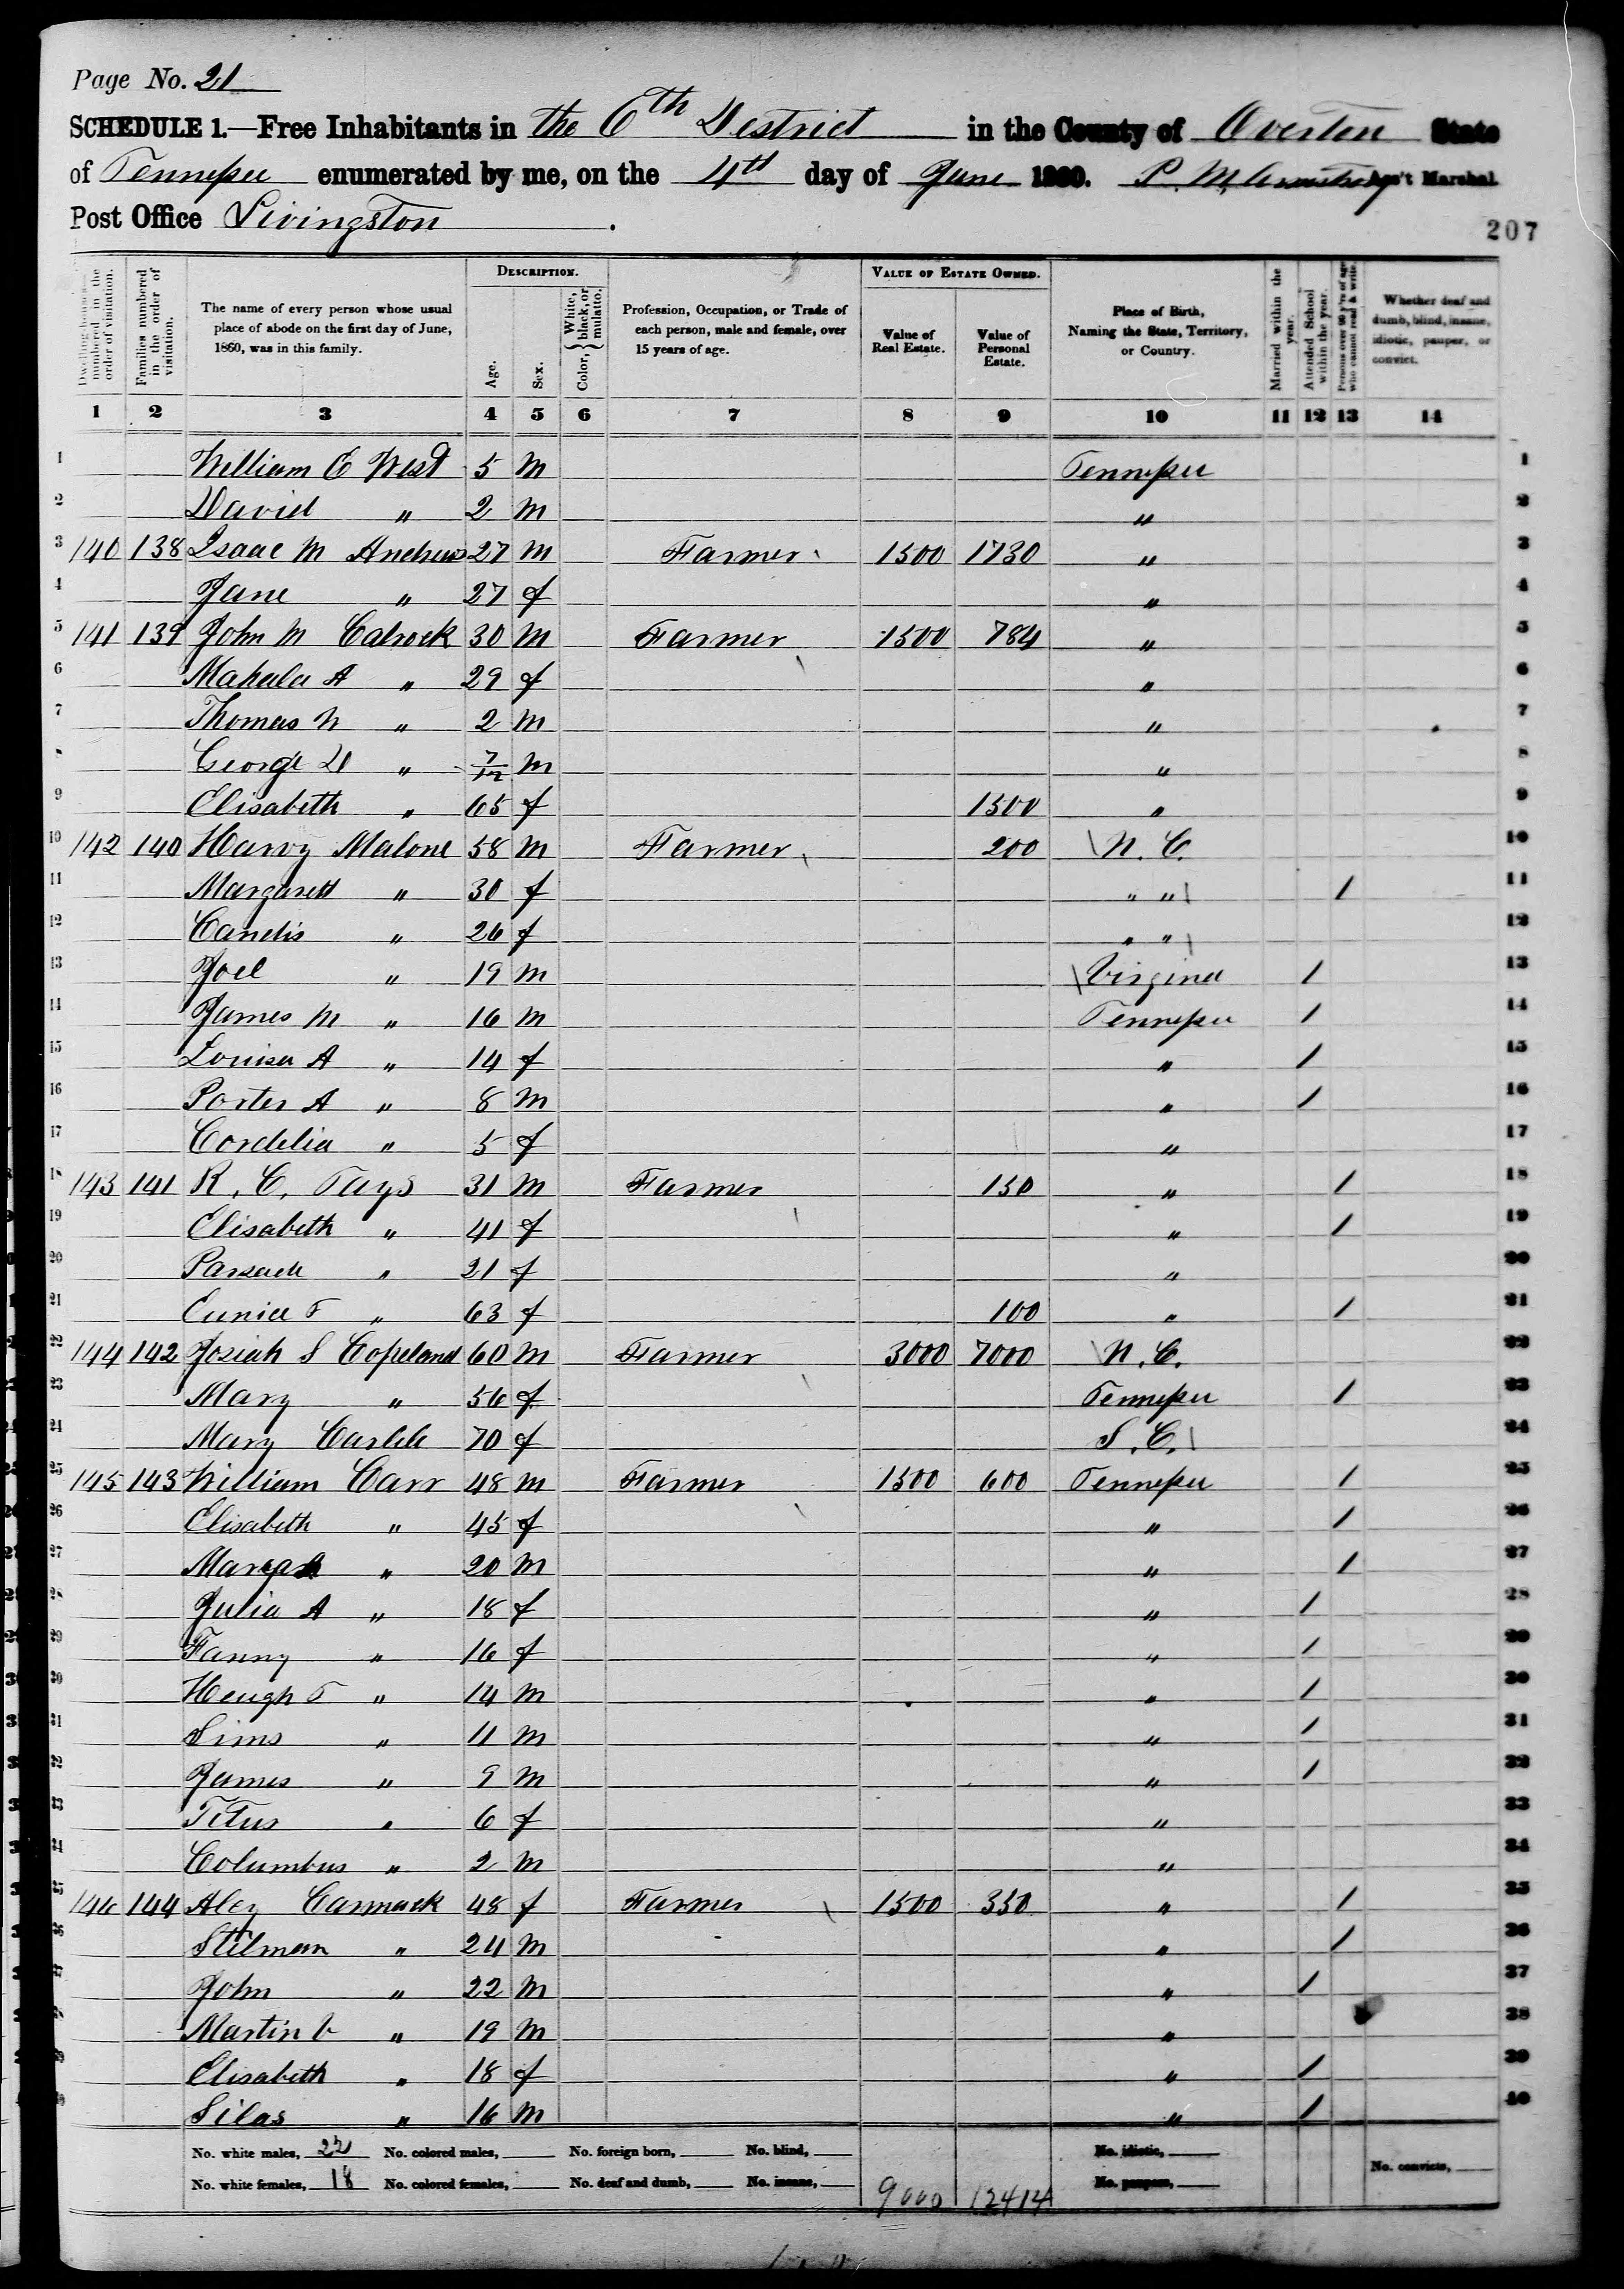 Page No. 21
SCHEDULE 1.—Free Inhabitants in the 6th District in the County of Overton State
of Tennessee enumerated by me, on the 4th day of June 1860. P. M. Armstrong Ass't Marshal
Post Office Livingston.
207
Dwelling-houses numbered in the order of visitation.
Families numbered in the order of visitation.
The name of every person whose usual place of abode on the first day of June, 1860, was in this family.
DESCRIPTION.
Age.
Sex.
Color, White, black, or mulatto.
Profession, Occupation, or Trade of each person, male and female, over 15 years of age.
VALUE OF ESTATE OWNED.
Value of Real Estate.
Value of Personal Estate.
Place of Birth, Naming the State, Territory, or Country.
Married within the year.
Attended School within the year.
Persons over 20 y'rs of age who cannot read & write.
Whether deaf and dumb, blind, insane, idiotic, pauper, or convict.
1 2 3 4 5 6 7 8 9 10 11 12 13 14
1 William C West 5 m Tennessee 1
2 David " 2 m " 2
3 140 138 Isaac M Andrews 27 m Farmer 1500 1730 " 3
4 Jane " 27 f " 4
5 141 139 John M Calrock 30 m Farmer 1500 784 " 5
6 Mahala A " 29 f " 6
7 Thomas N " 2 m " 7
8 George D " 7/12 m " 8
9 Elisabeth " 65 f 1500 " 9
10 142 140 Harvy Malone 58 m Farmer 200 N. C. 10
11 Margarett " 30 f " " / 11
12 Candis " 26 f " " 12
13 Joel " 19 m Virginia / 13
14 James M " 16 m Tennessee / 14
15 Louisa A " 14 f " / 15
16 Porter A " 8 m " / 16
17 Cordelia " 5 f " 17
18 143 141 R. C. Tays 31 m Farmer 150 " / 18
19 Elisabeth " 41 f " / 19
20 " 21 f " 20
21 Eunice F " 63 f 100 " / 21
22 144 142 Josiah S Copeland 60 m Farmer 3000 7000 N. C. 22
23 Mary " 56 f Tennessee / 23
24 Mary Carlile 70 f S. C. 24
25 145 143 William Carr 48 m Farmer 1500 600 Tennessee / 25
26 Elisabeth " 45 f " / 26
27 " 20 m " / 27
28 Julia A " 18 f " / 28
29 Fanny " 16 f " / 29
30 Heugh T " 14 m " / 30
31 Sims " 11 m " / 31
32 James " 9 m " / 32
33 Titus " 6 f " 33
34 Columbus " 2 m " 34
35 146 144 Aley Carmack 48 f Farmer 1500 350 " / 35
36 Stilman " 24 m " / 36
37 John " 22 m " / 37
38 Martin V " 19 m " 38
39 Elisabeth " 18 f " / 39
40 Silas " 16 m " / 40
No. white males, 22 No. colored males, No. foreign born, No. blind, No. idiotic,
No. white females, 18 No. colored females, No. deaf and dumb, No. insane, 9000 12414 No. paupers, No. convicts,